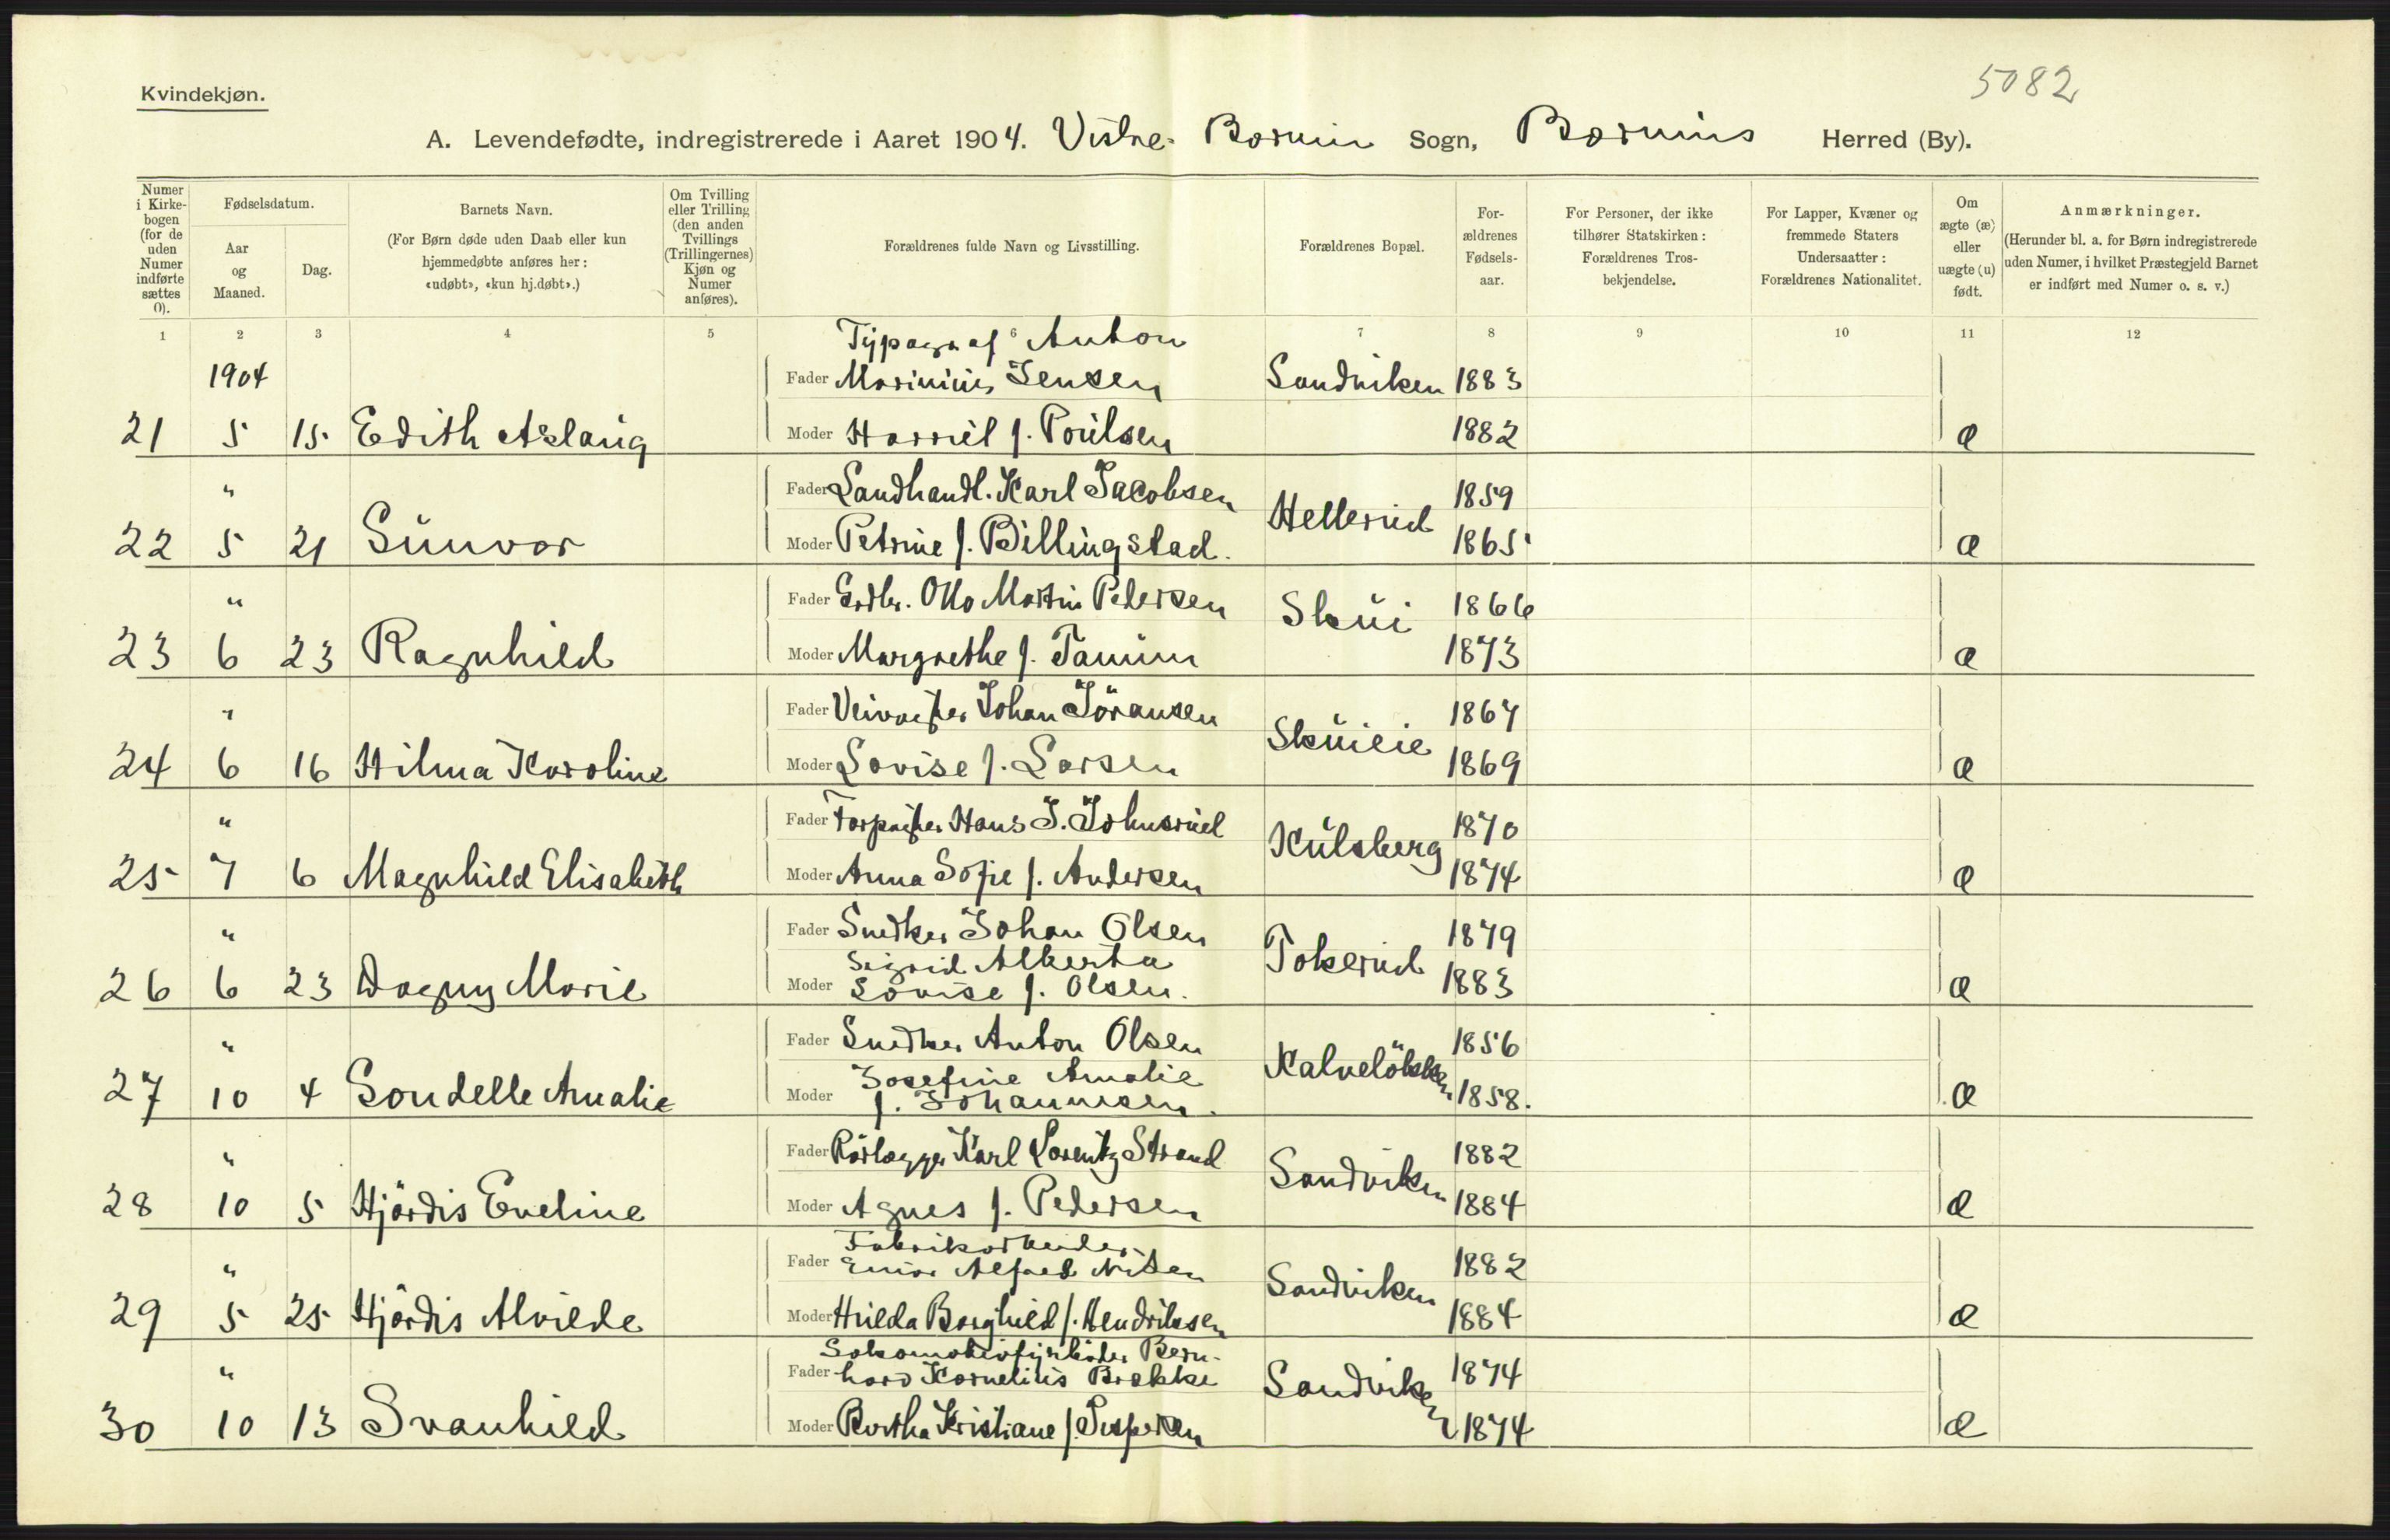 5082
Kvindekjøn.
A. Levendefødte, indregistrerede i Aaret 1904. Vestre Bærum Sogn, Bærums Herred (By).
Numer i Kirkebogen (for de uden Numer indførte sættes 0).
Fødselsdatum.
Aar og Maaned.
Dag.
Barnets Navn.
(For Børn døde uden Daab eller kun hjemmedøbte anføres her: «udøbt», «kun hj.døbt».)
Om Tvilling eller Trilling (den anden Tvillings (Trillingernes) Kjøn og Numer anføres).
Forældrenes fulde Navn og Livsstilling.
Forældrenes Bopæl.
Forældrenes Fødselsaar.
For Personer, der ikke tilhører Statskirken: Forældrenes Trosbekjendelse.
For Lapper, Kvæner og fremmede Staters Undersaatter: Forældrenes Nationalitet.
Om ægte (æ) eller uægte (u) født.
Anmærkninger.
(Herunder bl. a. for Børn indregistrerede uden Numer, i hvilket Præstegjeld Barnet er indført med Numer o. s. v.)
1 2 3 4 5 6 7 8 9 10 11 12
1904
Typograf Anton
Fader Marinius Jensen Sandviken 1883
21 5 15 Edith Aslaug Moder Harriet f. Poulsen 1882 æ
" Fader Landhandl. Karl Jacobsen Hellerud 1859
22 5 21 Sunvor Moder Petrine f. Billingstad. 1865 æ
" Fader Grdbr. Otto Martin Pedersen Skui 1866
23 6 23 Ragnhild Moder Margrethe f. Tanum 1873 æ
" Fader Veivogter Johan Jöransen Skuieie 1867
24 6 16 Hilma Karoline Moder Lovise f. Larsen 1869 æ
" Fader Forpagter Hans J. Johnsrud Kulsberg 1870
25 7 6 Magnhild Elisabeth Moder Anna Sofie f. Andersen 1874 æ
" Fader Snedker Johan Olsen Tokerud 1879
Sigrid Alberta
26 6 23 Dagny Marie Moder Lovise f. Olsen. 1883 æ
" Fader Snedker Anton Olsen Kalveløkken 1856
Josefine Amalie
27 10 4 Sondelle Amalie Moder f. Johannesen. 1858. æ
" Fader Rörlægger Karl Lorentz Strand Sandviken 1882
28 10 5 Hjördis Eveline Moder Agnes f. Pedersen 1884 æ
Fabrikarbeider
" Fader Einar Alfred Nilsen Sandviken 1882
29 5 25 Hjördis Alvilde Moder Hulda Borghild f. Hendriksen 1884 æ
Lokomotivfyrböder Bern-
" Fader hard Kornelius Brække Sandviken 1874
30 10 13 Svanhild Moder Bertha Kristiane f. Jespersen 1874 æ